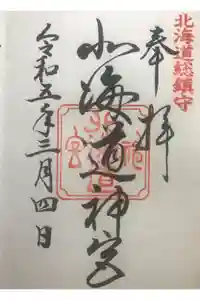 北海道総鎮守
奉拝
北海道神宮
令和五年三月四日